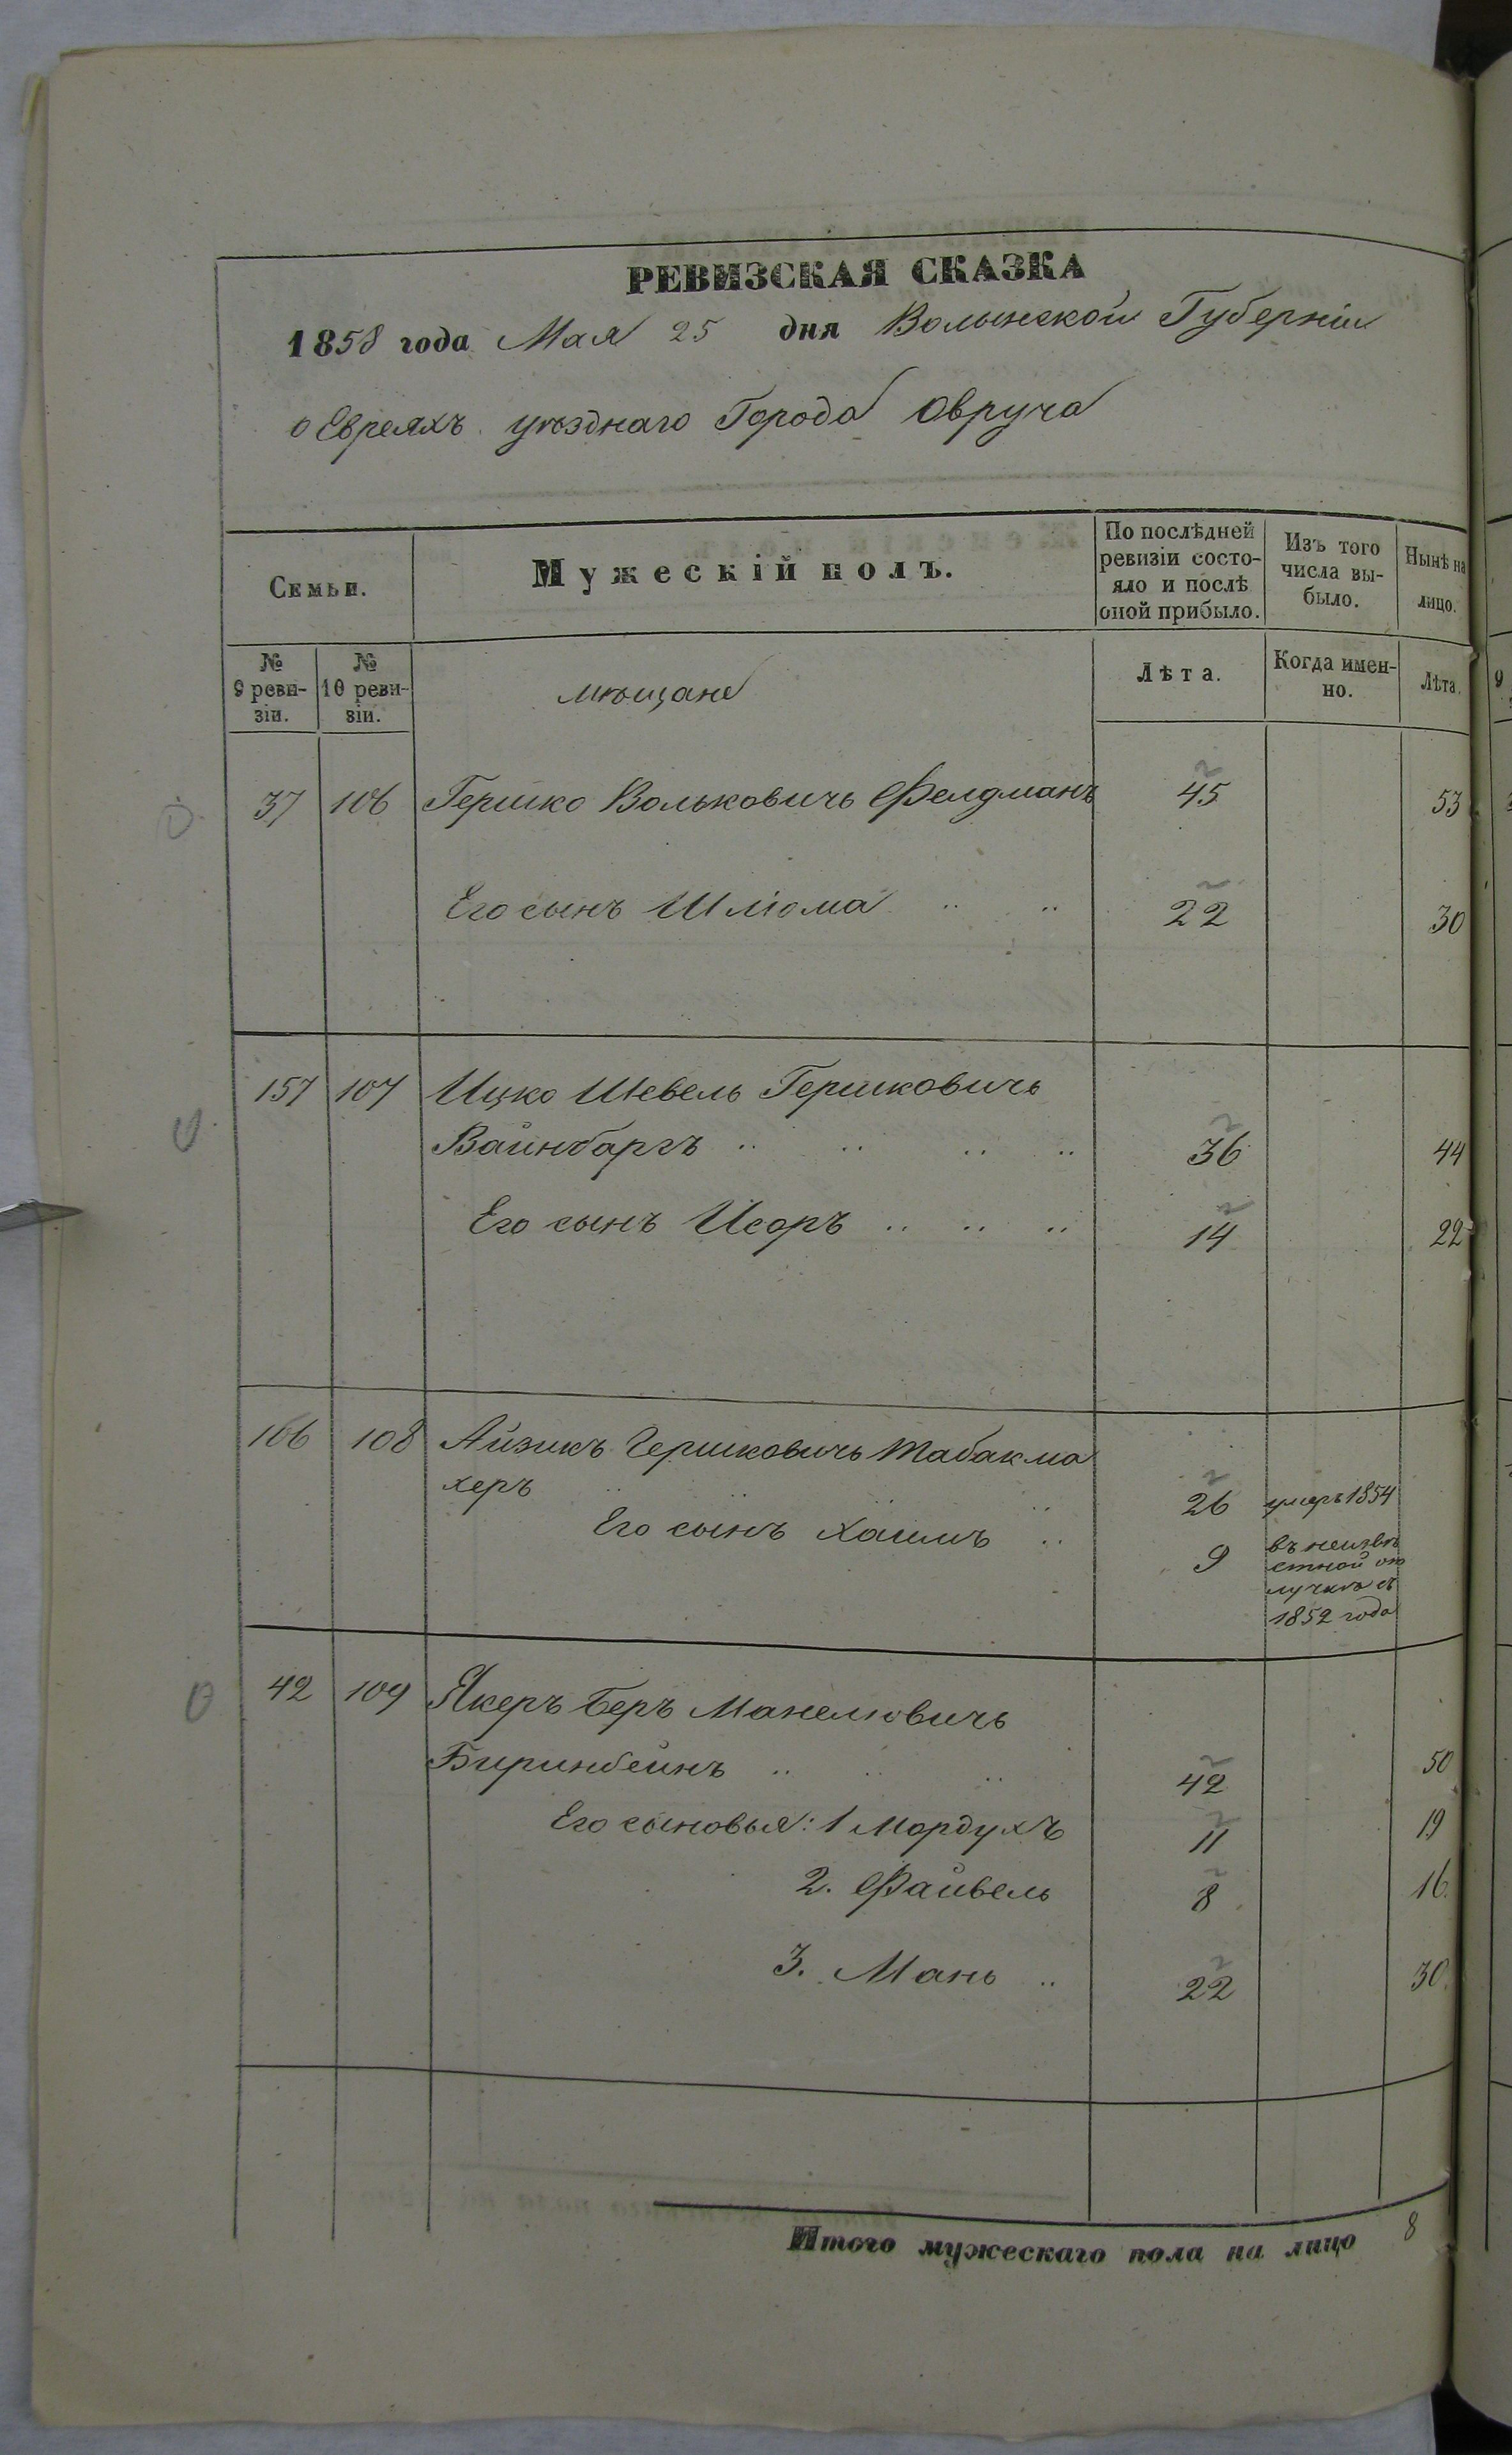 РЕВИЗСКАЯ СКАЗКА
1858 года Мая 25 дня Волынской Губерніи
о Евреяхъ уѣзднаго Города Овруча
Семьи.
Мужескій полъ.
По послѣдней ревизіи состо-
яло и послѣ оной прибыло.
Изъ того числа вы-
было.
Нынѣ на лицо.
№ 9 реви-
зіи.
№ 10 реви-
зіи.
мѣщане
Лѣта.
Когда имен-
но.
Лѣта.
37 106 Гершко Вольковичъ Фелдманъ 45 53
Его сынъ Шліома .. .. 22 30
157 107 Ицко Шевель Гершковичъ
Вайнбаргъ .. .. .. .. 36 44
Его сынъ Исоръ .. .. .. 14 22
166 108 Айзикъ Гершковичъ Табакма
херъ .. .. .. .. 26 умеръ 1854
Его сынъ Хаимъ .. 9 въ неизвѣ
стной от
лучкѣ съ
1852 года
42 109 Якеръ Беръ Манелювичъ
Биринбейнъ .. .. .. 42 50
Его сыновья: 1 Мордухъ 11 19
2. Файвель 8 16.
3. Мань .. 22 30.
Итого мужескаго пола на лицо 8